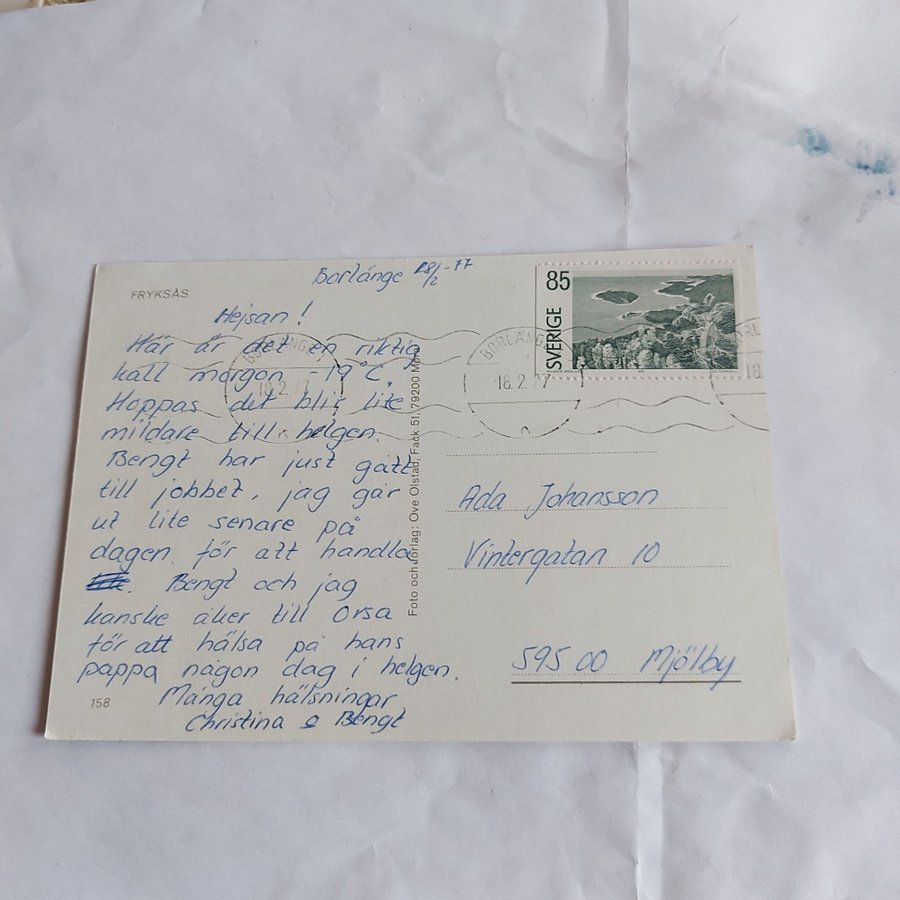 FRYKSÅS
Borlänge 18/2-77
Hejsan!
Här är det en riktig
kall morgon -19°C.
Hoppas det blir lite
mildare till helgen.
Bengt har just gått
till jobbet, jag går
ut lite senare på
dagen för att handla
. Bengt och jag
kanske åker till Orsa
för att hälsa på hans
pappa någon dag i helgen.
Många hälsningar
Christina & Bengt
158
Foto och förlag: Ove Olstad, Fack 51, 79200
85
SVERIGE
BORLÄNGE
18.2.77
BORLÄNGE
18.2.77
18
Ada Johansson
Vintergatan 10
595 00 Mjölby